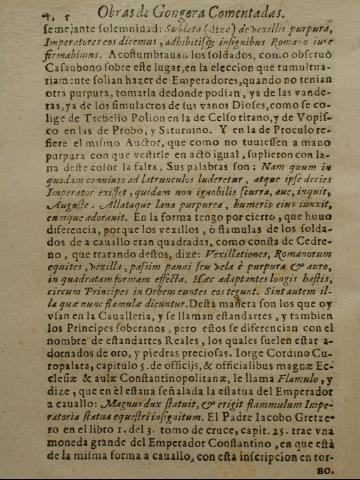 Obras de Gongora Comentadas.
semejante solemnidad: Sublata (dize) de vexillis purpura,
Imperatores eos dicemus, adhibitisq; insignibus Romano iure
firmabimus. Acostumbrauan los soldados, como obseruò
Casaubono sobre este lugar, en la eleccion que tumultua-
riamente solian hazer de Emperadores, quando no tenian
otra purpura, tomarla de donde podian, ya de las vande-
ras, ya de los simulacros de sus vanos Dioses, como se co-
lige de Trebelio Polion en la de Celso titano, y de Vopis-
co en las de Probo, y Saturnino. Y en la de Proculo re-
fiere el mismo Auctor, que como no tuuiessen a mano
purpura con que vestirle en acto igual, suplieron con la-
na deste color la falta. Sus palabras son: Nam quum in
quodam conuiuio ad latrunculos luderetur, atque ipse decies
Imperator exisset, quidam non ignobilis scurra, aue, inquit,
Auguste. Allataque lana purpurea, humeris eius iunxit,
eumque adorauit. En la forma tengo por cierto, que huuo
diferencia, porque los vexillos, ò flamulas de los solda-
dos de a cauallo eran quadradas, como consta de Cedre-
no, que tratando destos, dize: Vexillationes, Romanorum
equites, vexilla, passim panai seu vela è purpura & auro,
in quadratam formam effecta. Hæc adaptantes longis hastis,
circum Principes in Orbem euntes eos tegunt. Sint autem il-
la quæ nunc flamulæ dicuntur. Desta manera son los que oy
vsan en la Caualleria, y se llaman estandartes, y tambien
los Principes soberanos, pero estos se diferencian con el
nombre de estandartes Reales, los quales suelen estar a-
dornados de oro, y piedras preciosas. Iorge Cordino Cu-
ropalata, capitulo 5. de officijs, & officialibus magnæ Ec-
clesiæ & aulæ Constantinopolitanæ, le llama Flamulo, y
dize, que en èl estaua señalada la estatua del Emperador
a cauallo: Magnus dux statuit, & erigit flammulum Impe-
ratoria statua equestri insignitum. El Padre Iacobo Gretze-
ro en el libro 1. del 3. tomo de cruce, capit. 25. trae vna
moneda grande del Emperador Constantino, en que està
de la misma forma a cauallo, con esta inscripcion en tor-
no.